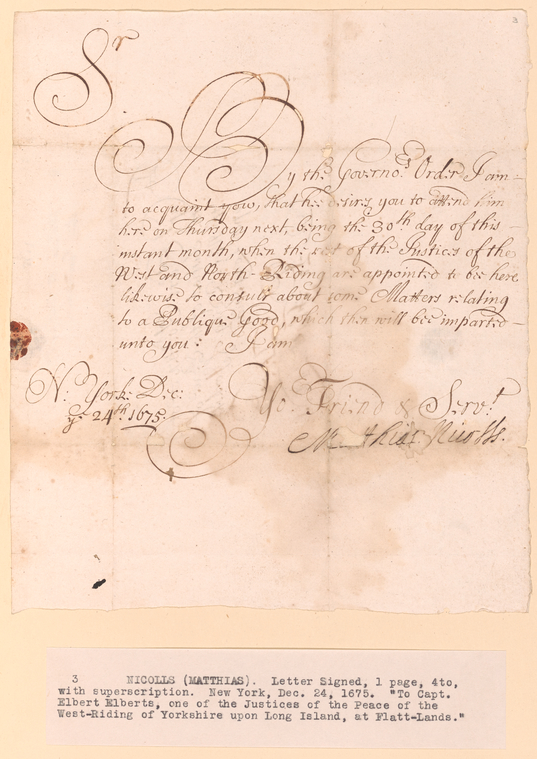 3
Sr
By the Governors Order I am
to acquaint you, that hee desires you to attend him
here on Thursday next, being the 30th day of this
instant month, when the rest of the Justices of the
West and North Riding are appointed to bee here
likewise to consult about some Matters relating
to a Publique Good, which then will bee imparted
unto you: I am
N. York Dec:
ye 24th. 1675.
Yor. Friend & Servt
Matthias Nicolls.
3 NICOLLS (MATTHIAS). Letter Signed, 1 page, 4to,
with superscription. New York, Dec. 24, 1675. "To Capt.
Elbert Elberts, one of the Justices of the Peace of the
West-Riding of Yorkshire upon Long Island, at Flatt-Lands."